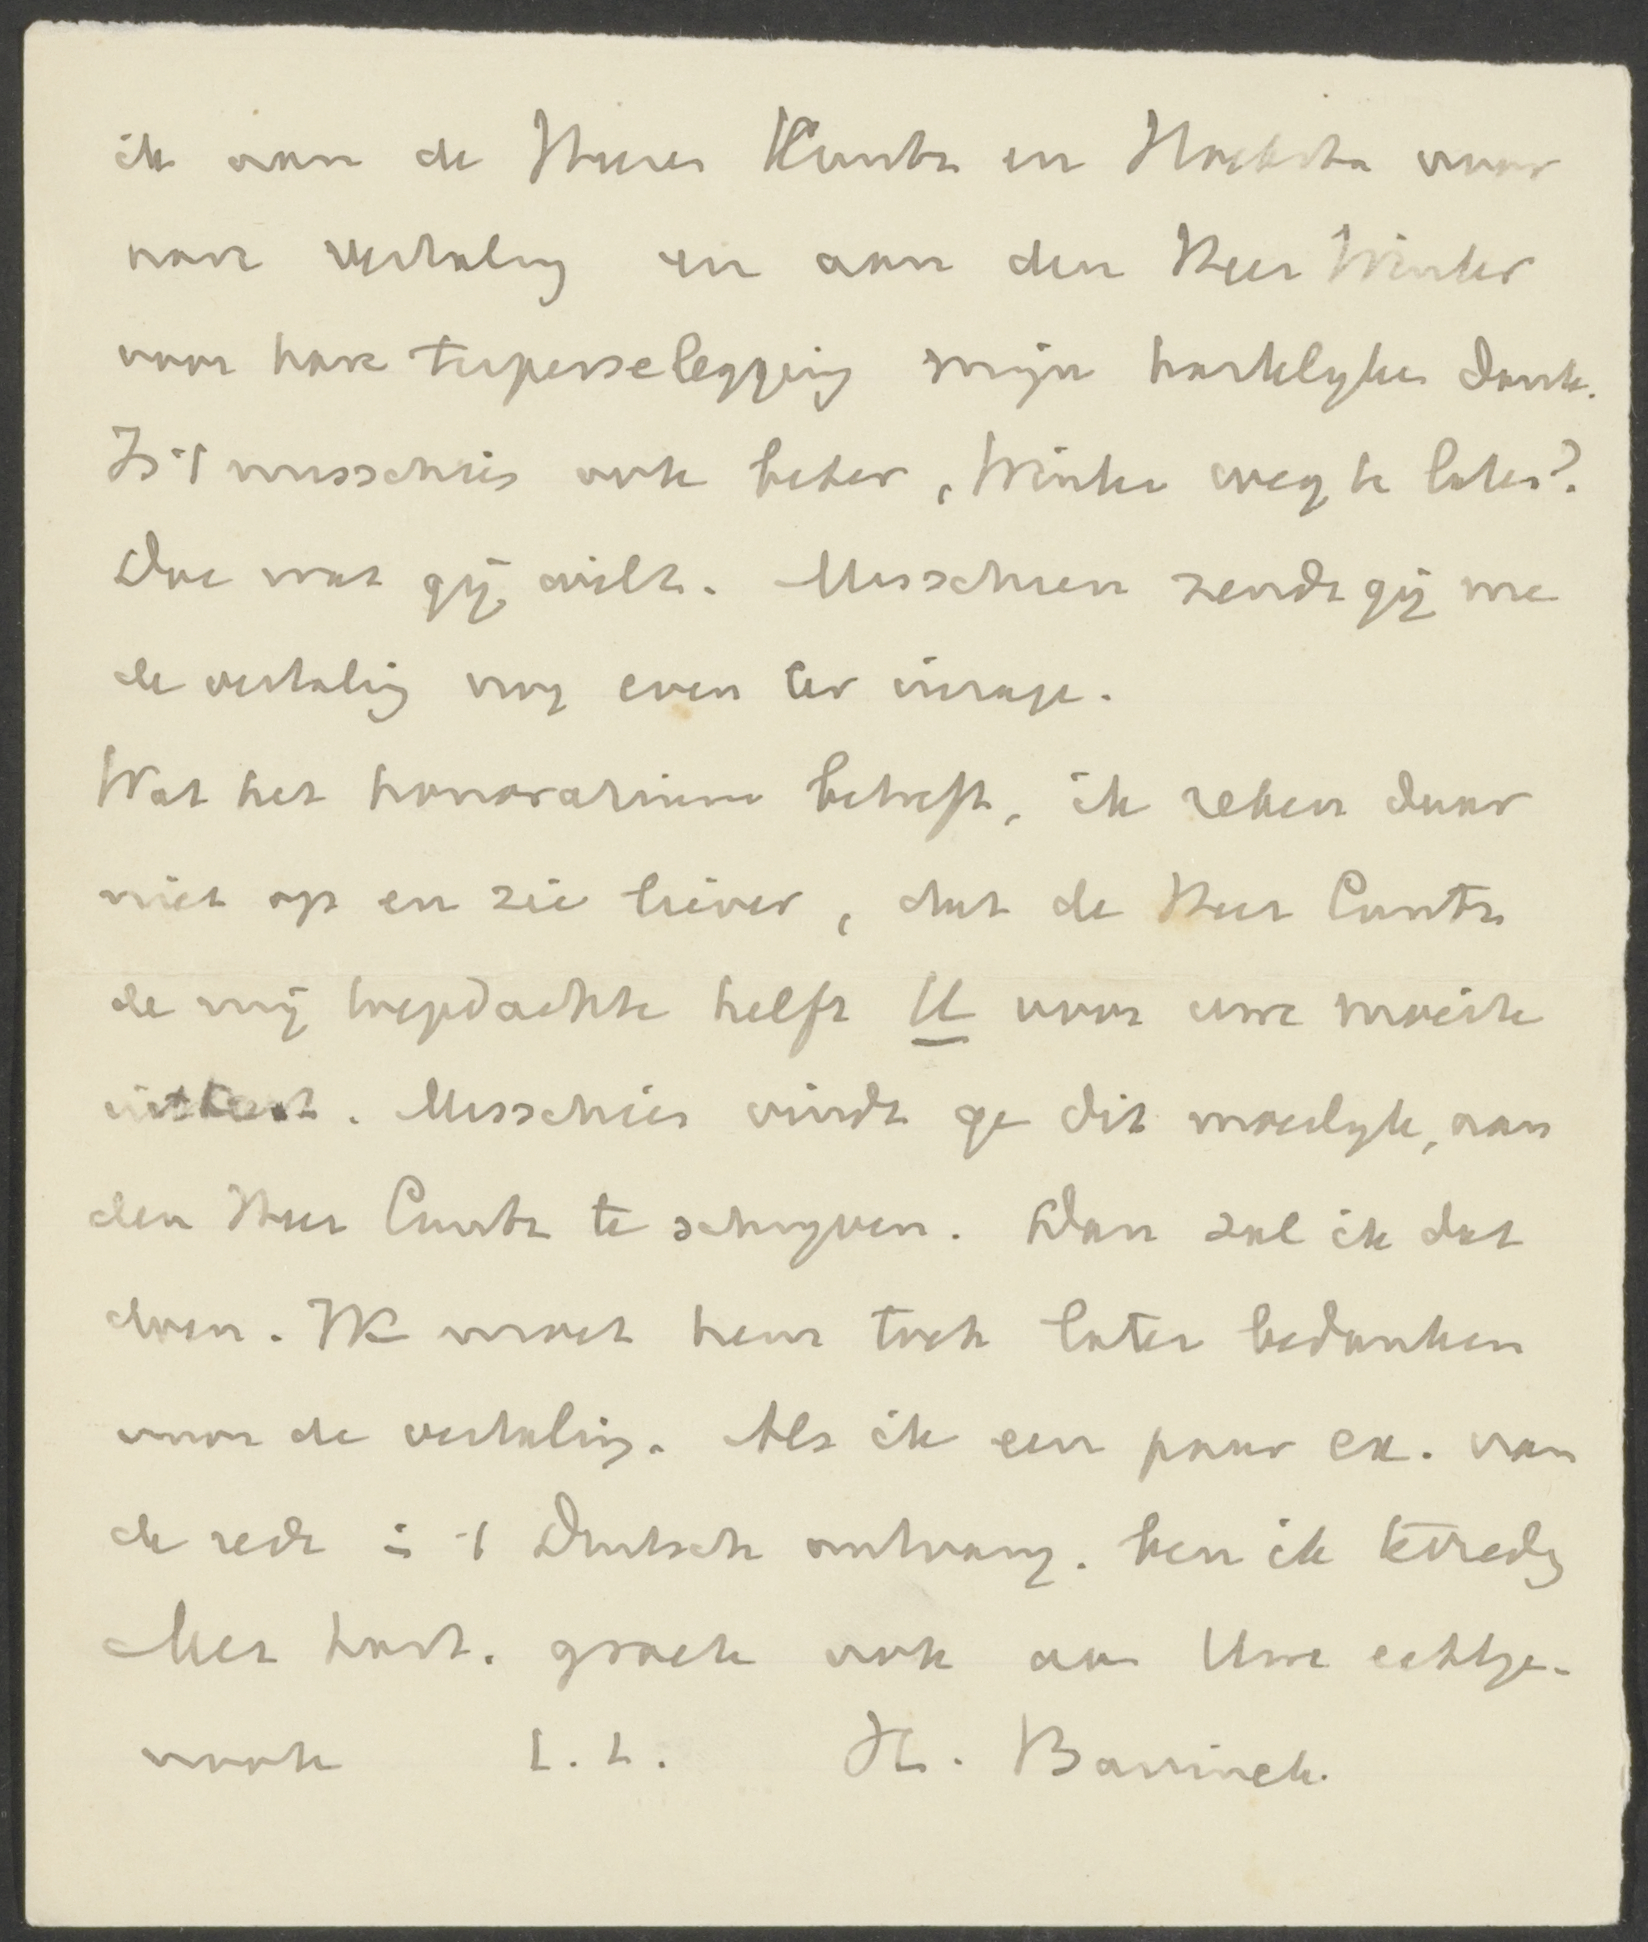 ik aan de Heeren Kuntz en Hoekstra voor
hare vertaling en aan den Heer Winter
voor hare terperselegging mijn hartelyken dank.
Is 't misschien ook beter, Winter weg te laten?
Doe wat gij wilt. Misschien zendt gij me
de vertaling nog even ter inzage.
Wat het honorarium betreft, ik reken daar
niet op en zie liever, dat de Heer Cuntz
de mij toegedachte helft U voor uwe moeite
uitkeert. Misschien vindt ge dit moeilyk, aan
den Heer Cuntz te schryven. Dan zal ik dat
doen. Ik moet hem toch later bedanken
voor de vertaling. Als ik een paar ex. van
de rede in 't Duitsch ontvang. ben ik tevredg
Met hart. groete ook aan Uwe echtge-
noote t. t. H. Bavinck.